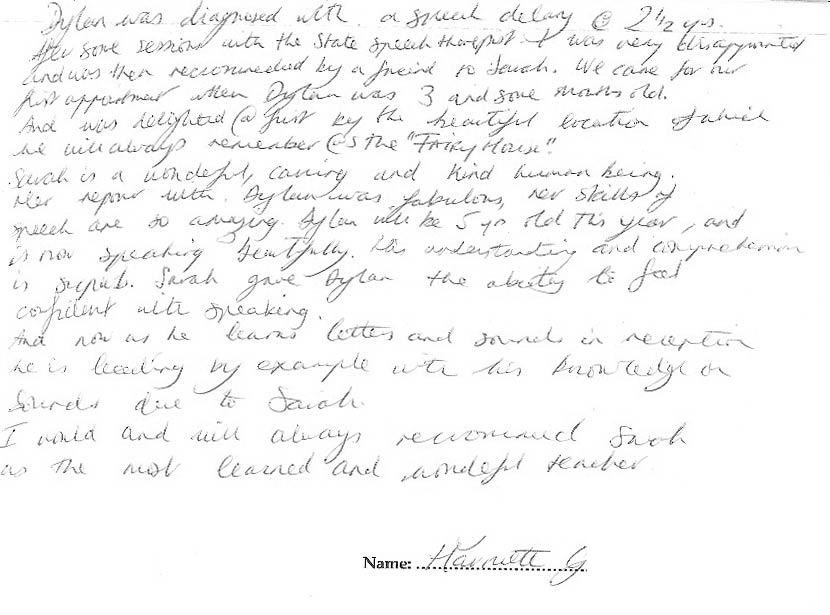 Dylan was diagnosed with a speech delay @ 2 1/2 yrs.
After some sessions with the State speech therapist I was very disappointed
and was then reccomended by a freind to Sarah. We came for our
first appointment when Dylan was 3 and some months old.
And was delighted @ first by the beautiful location of which
he will always remember as the "Fairy House".
Sarah is a wonderful, caring and kind human being.
Her repour with Dylan was fabulous, her skills of
speech are so amazing. Dylan will be 5 yr old this year, and
is now speaking beautfully. His understanding and comprehension
is superb. Sarah gave Dylan the abality to feel
confident with speaking.
And now as he learns letters and sounds in reception
he is leading by example with his knowledge on
sounds due to Sarah.
I would and will always reccommend Sarah
as the most learned and wonderful teacher.
Name: Harriett G